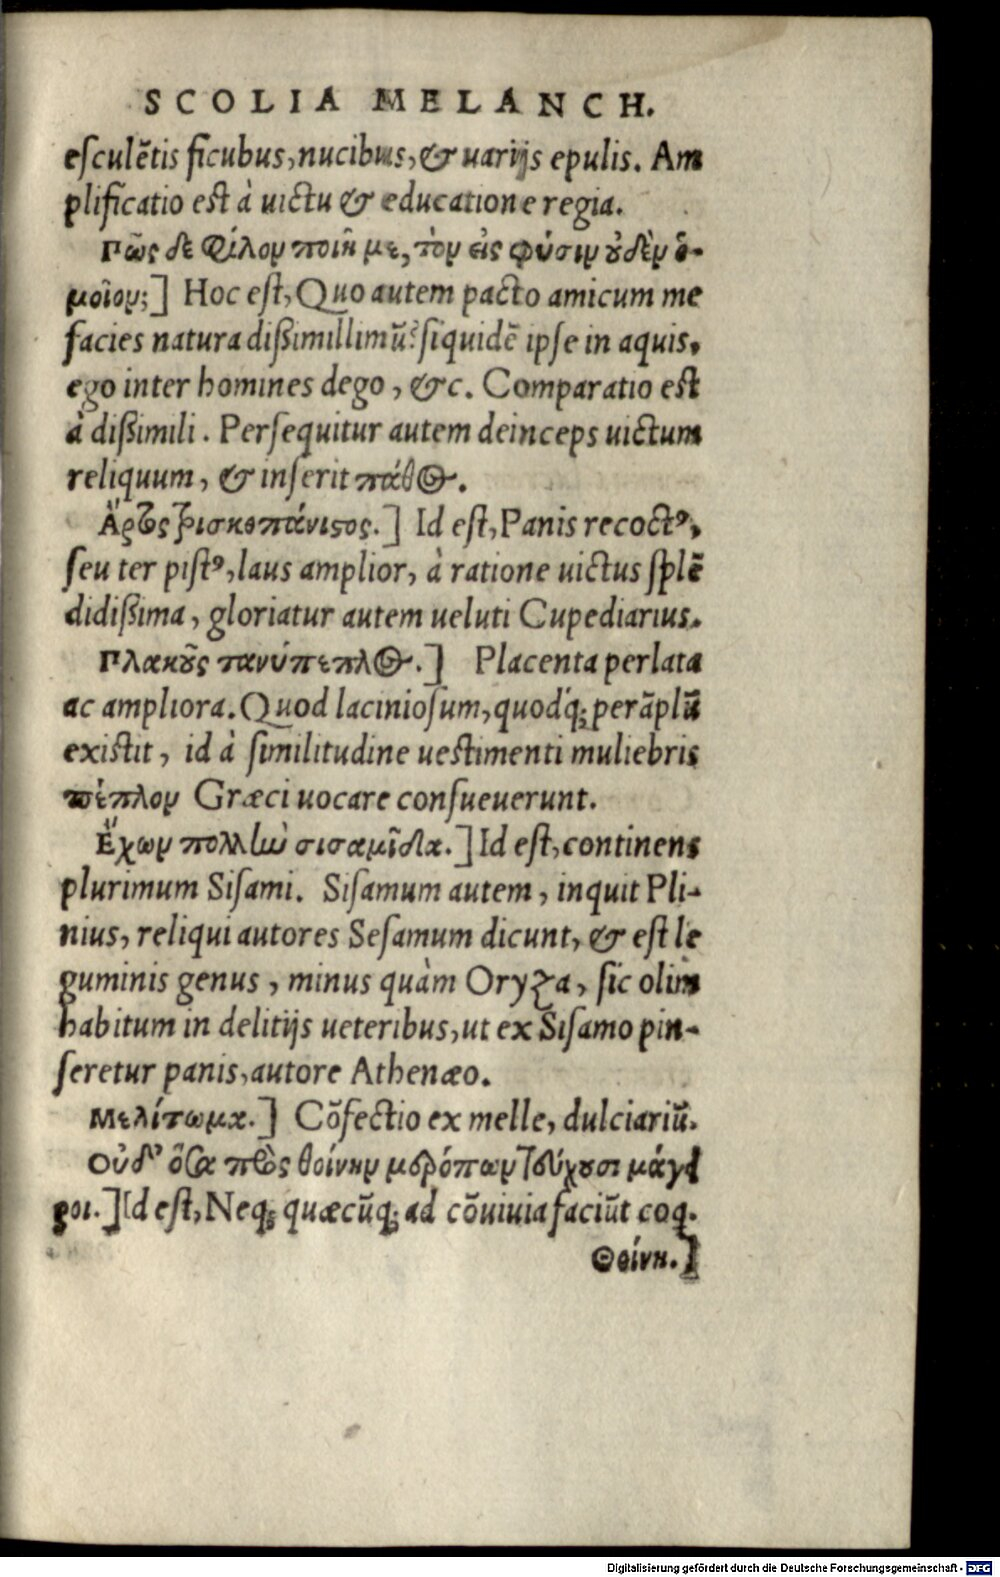 SCOLIA MELANCH.
esculẽtis ficubus, nucibus, & uarijs epulis. Am
plificatio est à uictu & educatione regia.
Πῶς δὲ φίλον ποιῇ με, τὸν εἰς φύσιν οὐδὲν ὅ-
μοῖον;] Hoc est, Quo autem pacto amicum me
facies natura dißimillimũ? siquidẽ ipse in aquis,
ego inter homines dego, &c. Comparatio est
à dißimili. Persequitur autem deinceps uictum
reliquum, & inserit πάθος.
Ἄρτος τρισκοπάνιστος.] Id est, Panis recoctꝰ,
seu ter pistꝰ, laus amplior, à ratione uictus splẽ
didißima, gloriatur autem ueluti Cupediarius.
Πλακοῦς τανύπεπλος.] Placenta perlata
ac ampliora. Quod laciniosum, quodq́; perãplũ
existit, id à similitudine uestimenti muliebris
πέπλον Græci uocare consueuerunt.
Ἔχων πολλὴν σισαμῖδα.] Id est, continens
plurimum Sisami. Sisamum autem, inquit Pli-
nius, reliqui autores Sesamum dicunt, & est le
guminis genus, minus quàm Oryza, sic olim
habitum in delitijs ueteribus, ut ex Sisamo pin-
seretur panis, autore Athenæo.
Μελίτωμα.] Cõfectio ex melle, dulciariũ.
Οὐδ' ὅσα πρὸς θοίνην μερόπων τεύχουσι μάγει
ροι.] Id est, Neq; quæcũq; ad cõuiuia faciũt coq.
Θοίνη.]
Digitalisierung gefördert durch die Deutsche Forschungsgemeinschaft - DFG